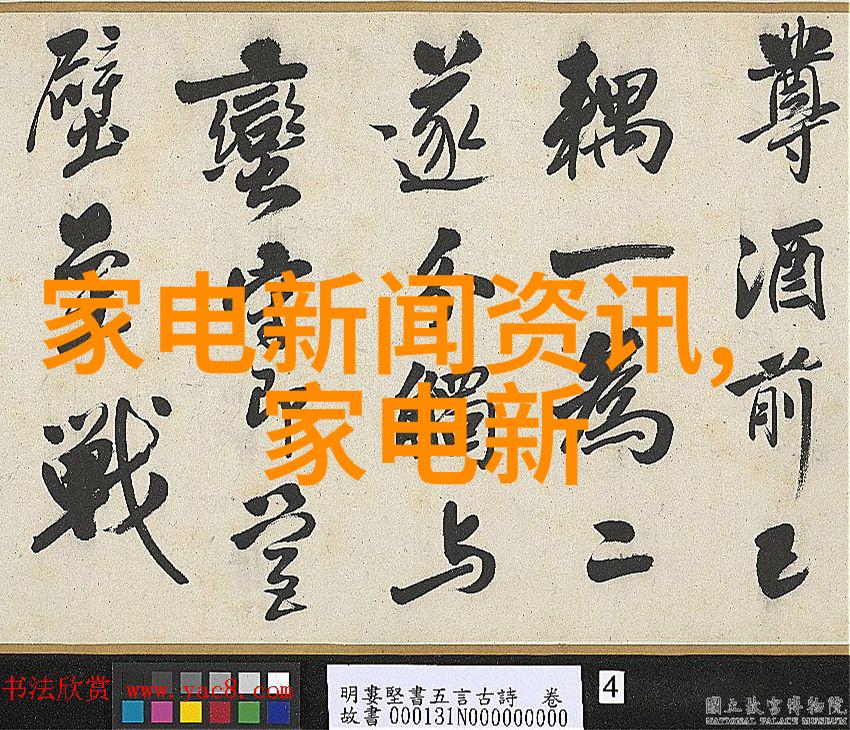 尊酒前已
耦一為二
遂令觸与
蠻
壁戰
家电新闻资讯,
家电新
书法欣赏 www.yac8.com
明婁堅書五言古詩 卷
故書000131N000000000
4
國立故宮博物院
NATIONAL PALACE MUSEUM